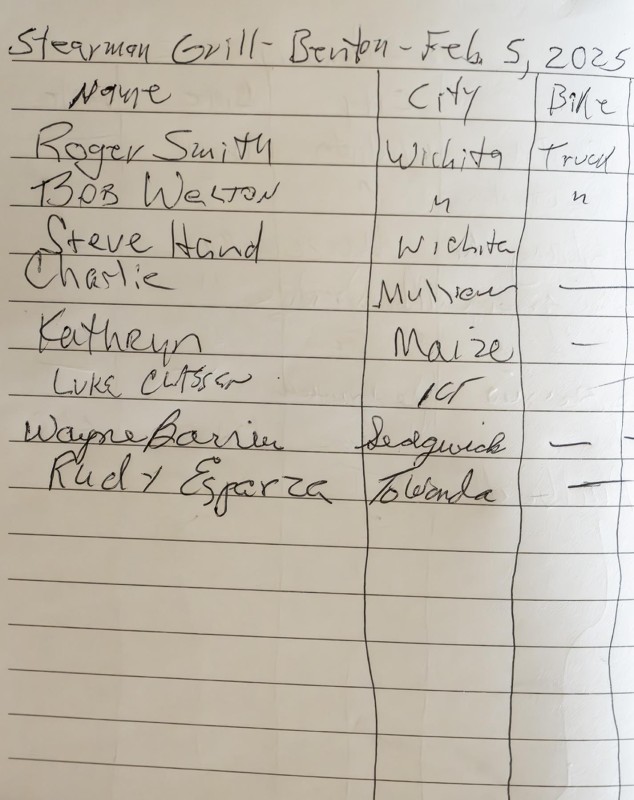 Stearman Grill - Benton - Feb. 5, 2025
Name City Bike
Roger Smith Wichita Truck
BOB WELTON " "
Steve Hand Wichita
Charlie —
Kathryn Maize —
LUKE CLASSEN ICT
Wayne Sedgwick —
Rudy Esparza Towanda —